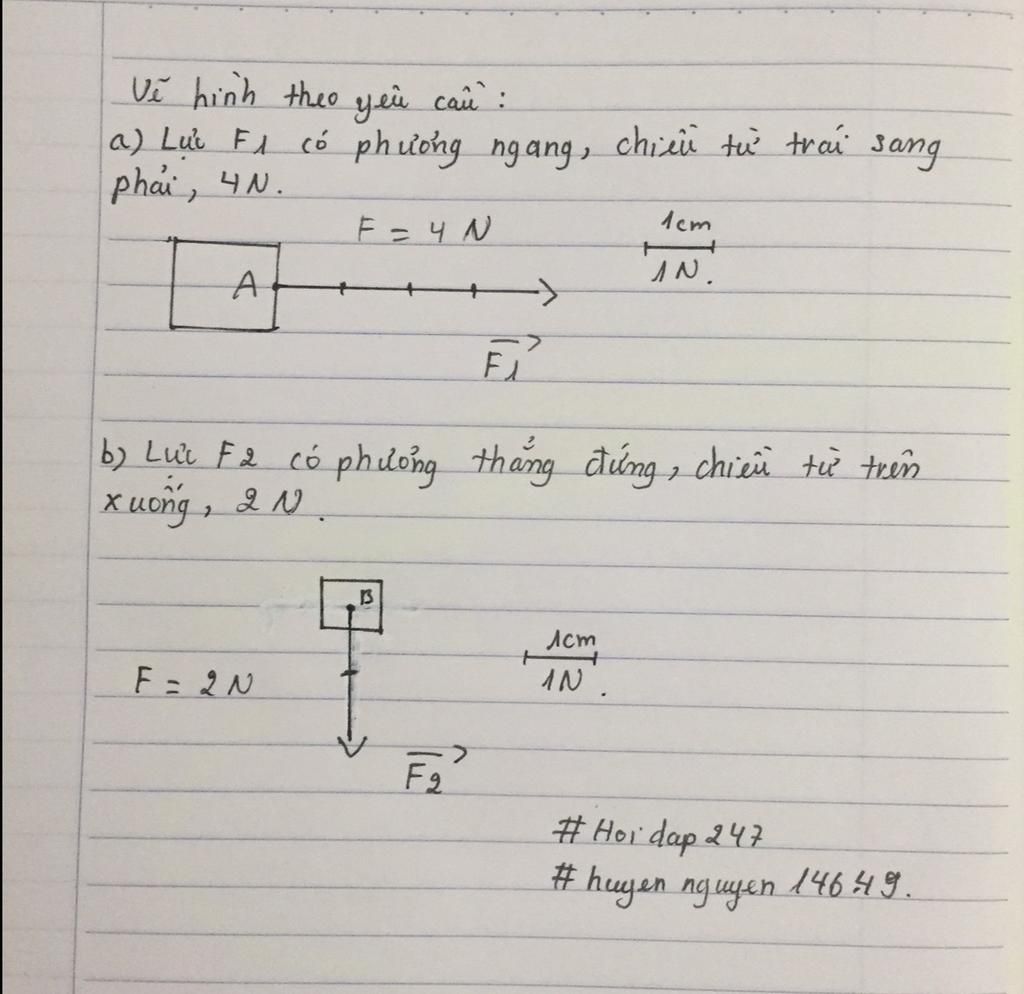 Vẽ hình theo yêu cầu :
a) Lực F1 có phương ngang, chiều từ trái sang
phải, 4N.
F = 4 N
1cm
1N.
A
F1
b) Lực F2 có phương thẳng đứng, chiều từ trên
xuống, 2 N.
B
1cm
1N.
F = 2N
F2
# Hoi dap 247
# huyen nguyen